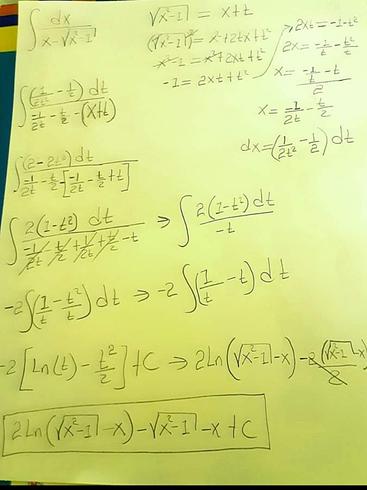 ∫ dx / (x-√(x²-1))
√(x²-1) = x+t
(√(x²-1))² = x²+2tx+t²
x²-1 = x²+2xt+t²
-1 = 2xt+t²
2xt = -1-t²
2x = -1/t - t²/t
x = (-1/t - t)/2
x = -1/2t - t/2
dx = (1/2t² - 1/2) dt
∫ (1/2t² - 1/2) dt / (-1/2t - t/2 - (x+t))
∫ (2-2t²) dt / (-1/2t - t/2 - [-1/2t - t/2 + t])
∫ 2(1-t²) dt / (-1/2t - t/2 + 1/2t + t/2 - t) ⇒ ∫ 2(1-t²) dt / -t
-2∫(1/t - t²/t) dt ⇒ -2∫(1/t - t) dt
-2[Ln(t) - t²/2] + C ⇒ 2Ln(√(x²-1) -x) - 2(√(x²-1) -x)/2
2Ln(√(x²-1) -x) - √(x²-1) -x + C